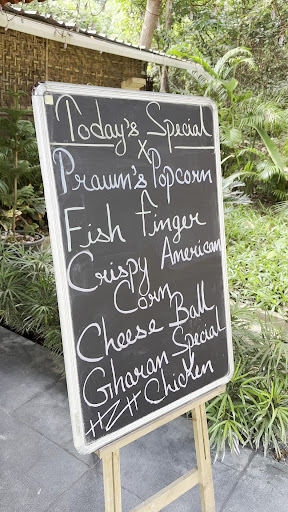 Today's Special
x
Prawn's Popcorn
Fish finger
Crispy American
Corn
Cheese Ball
Gharan Special
Chicken